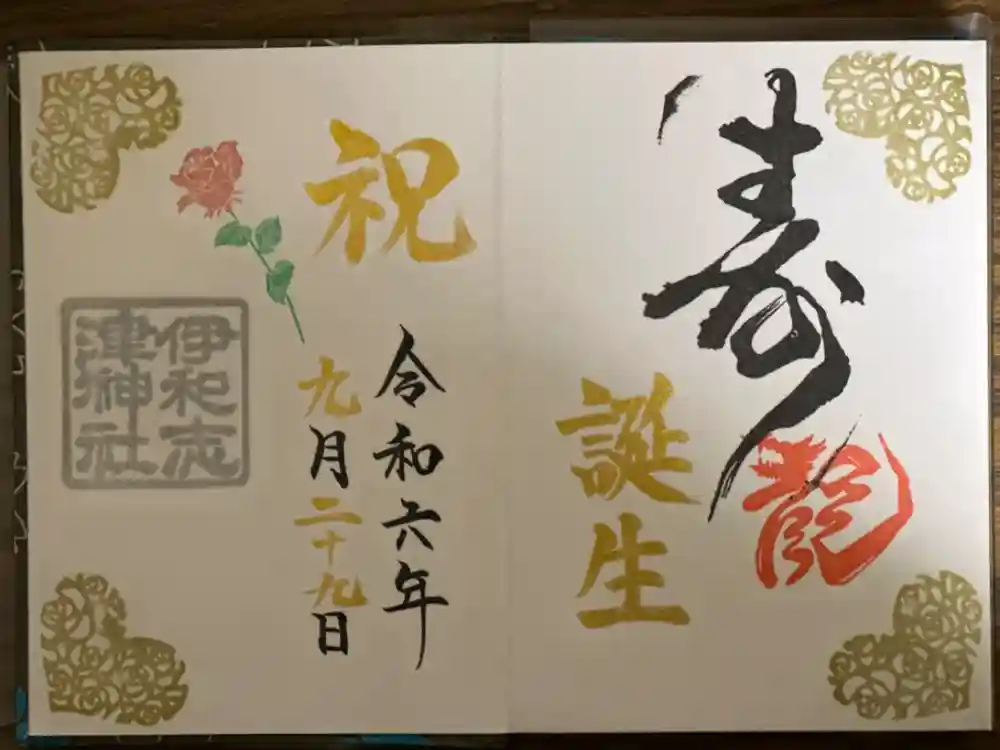 寿
龍
誕生
祝
令和六年
九月二十九日
伊和志
津神社